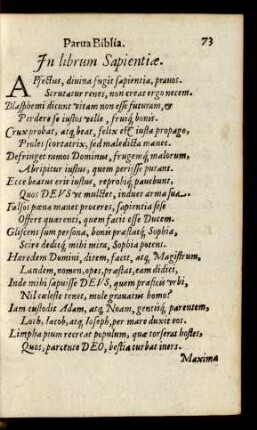 Parua Biblia. 73
In librum Sapientiæ.
AFfectus, diuina fugit sapientia, prauos.
Scrutatur renes, non creat ergo necem.
Blasphemi dicunt vitam non esse futuram, &
Perdere se iustos velle, fruiq́; bonis.
Crux probat, atq; beat, felix est iusta propago,
Proles scortatrix, sed maledicta manet.
Defringet ramos Dominus, frugemq́; malorum,
Abripitur iustus, quem perijsse putant.
Ecce beatus erit iustus, reprobiq́; pauebunt,
Quos DEVS vt mulctet, induet arma sua.
Falsos pœna manet proceres, sapientia sese
Offert quærenti, quem facit esse Ducem.
Gliscens sum persona, bonis præstatq́; Sophia,
Scire deditq́; mihi mira, Sophia potens.
Hæredem Domini, ditem, facit, atq; Magistrum,
Laudem, nomen, opes, præstat, eam didici,
Inde mihi sapuisse DEVS, quem præficis vrbi,
Nil cæleste tenet, mole grauatus homo?
Iam custodit Adam, atq; Noam, gentisq́; parentem,
Loth, Iacob, atq; Ioseph, per mare duxit eos.
Limpha pium recreat populum, quæ torserat hostes,
Quos, parcente DEO, bestia turbat iners.
Maxima